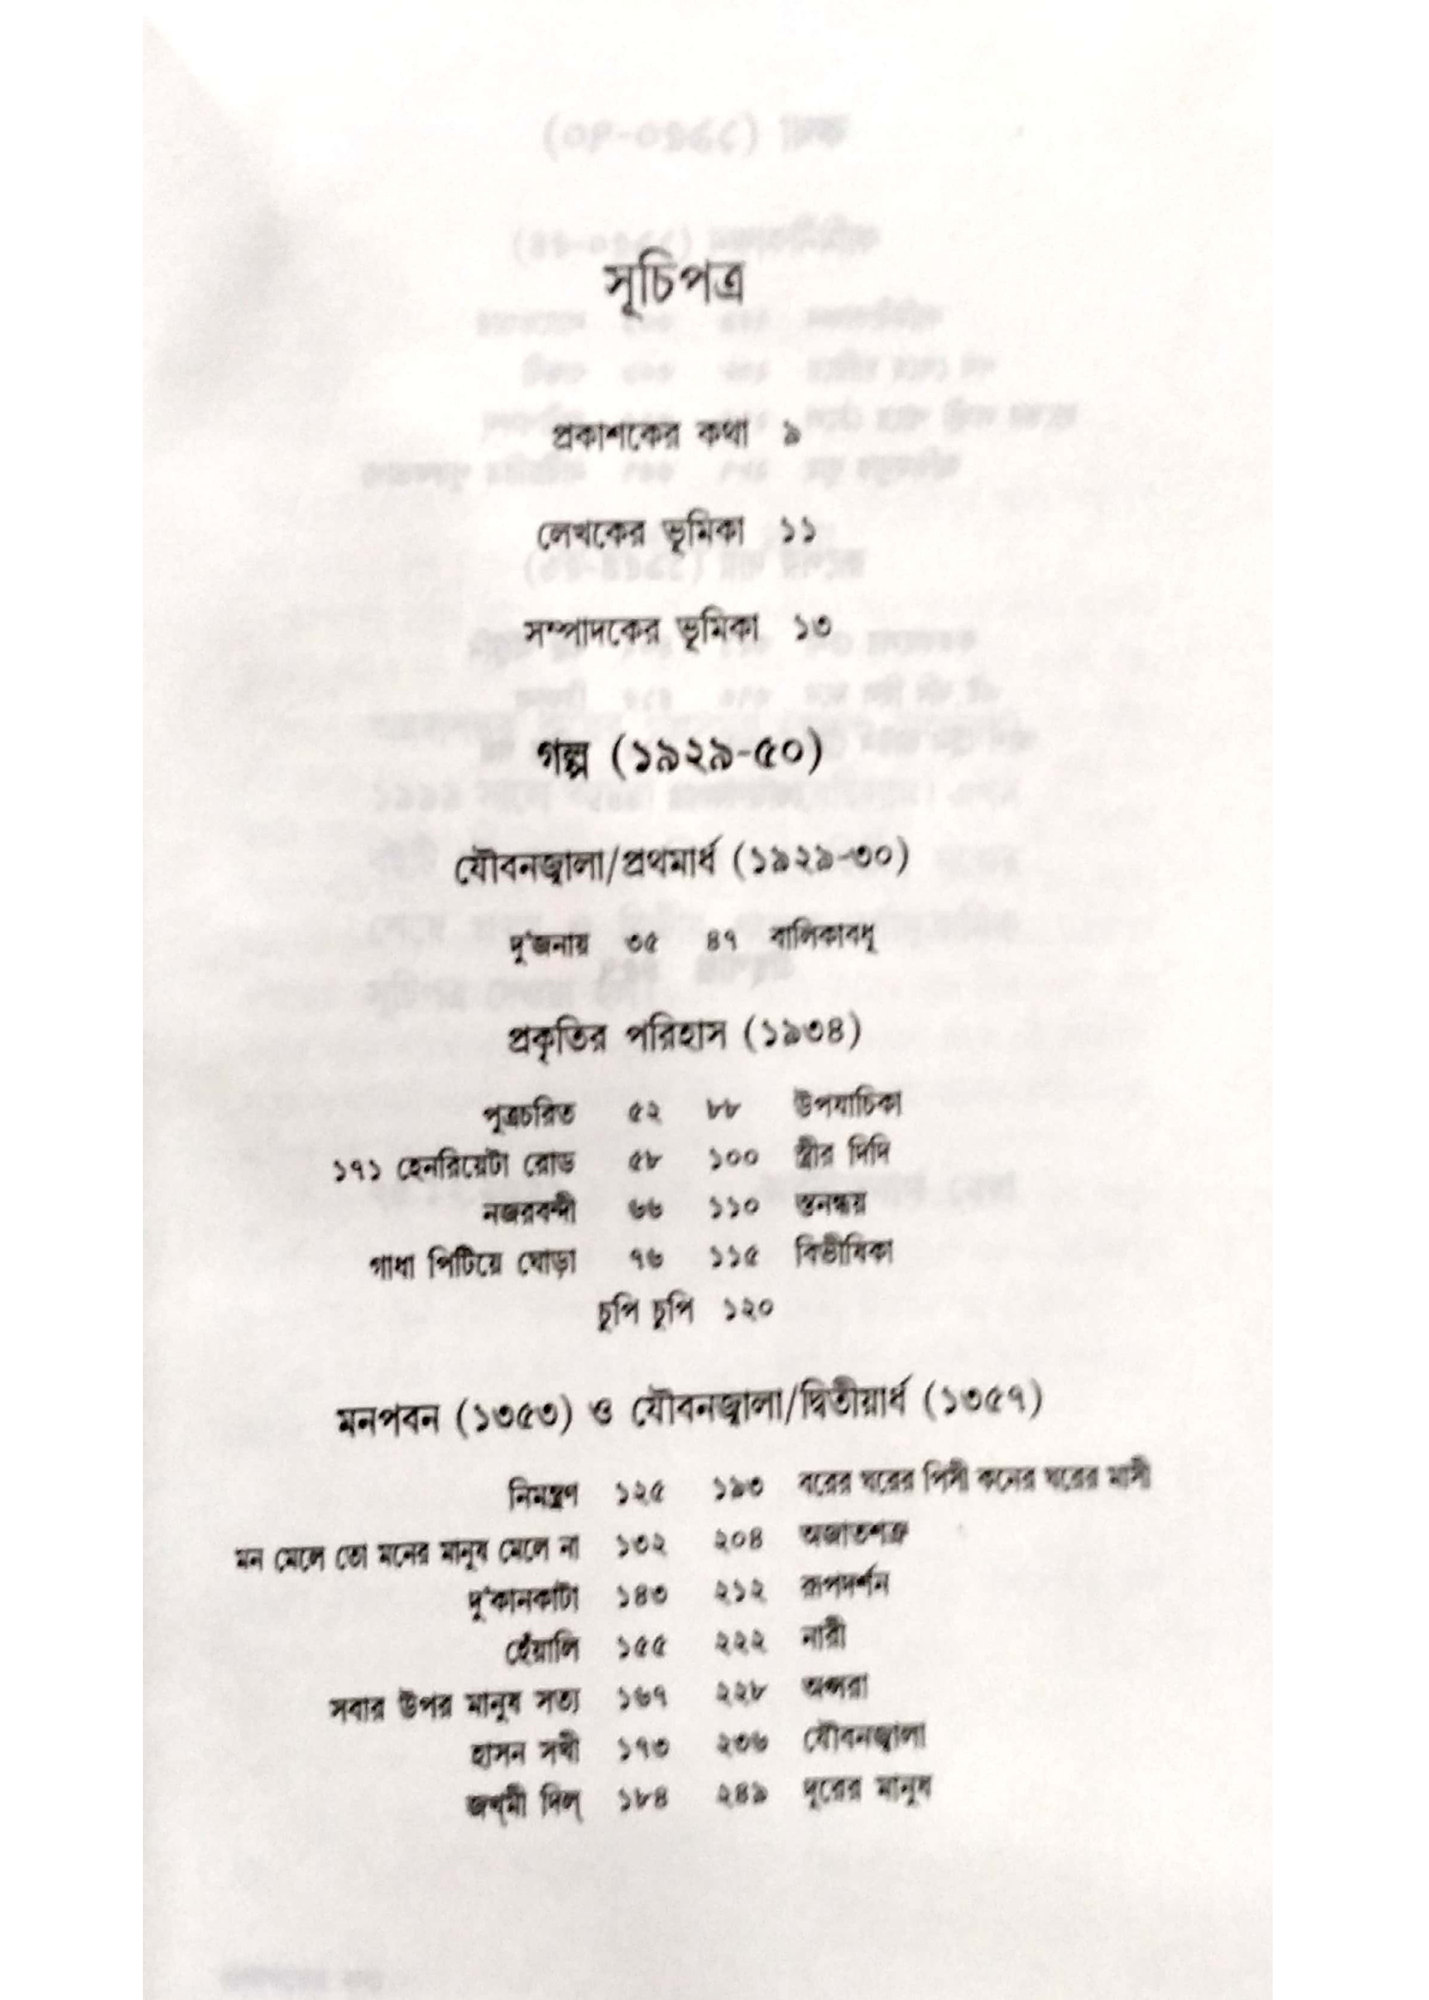 সূচিপত্র
প্রকাশকের কথা ৯
লেখকের ভূমিকা ১১
সম্পাদকের ভূমিকা ১৩
গল্প (১৯২৯-৫০)
যৌবনজ্বালা/প্রথমার্ধ (১৯২৯-৩০)
দু'জনায় ৩৫ ৪৭ বালিকাবধূ
প্রকৃতির পরিহাস (১৯৩৪)
পুত্রচরিত ৫২ ৮৮ উপযাচিকা
১৭১ হেনরিয়েটা রোড ৫৮ ১০০ স্ত্রীর দিদি
নজরবন্দী ৬৬ ১১০ স্তনন্ধয়
গাধা পিটিয়ে ঘোড়া ৭৬ ১১৫ বিভীষিকা
চুপি চুপি ১২০
মনপবন (১৩৫৩) ও যৌবনজ্বালা/দ্বিতীয়ার্ধ (১৩৫৭)
নিমন্ত্রণ ১২৫ ১৯৩ বরের ঘরের পিসী কনের ঘরের মাসী
মন মেলে তো মনের মানুষ মেলে না ১৩২ ২০৪ অজাতশত্রু
দু'কানকাটা ১৪৩ ২১২ রূপদর্শন
হেঁয়ালি ১৫৫ ২২২ নারী
সবার উপর মানুষ সত্য ১৬৭ ২২৮ অপ্সরা
হাসন সখী ১৭৩ ২৩৬ যৌবনজ্বালা
জখ্‌মী দিল্ ১৮৪ ২৪৯ দূরের মানুষ